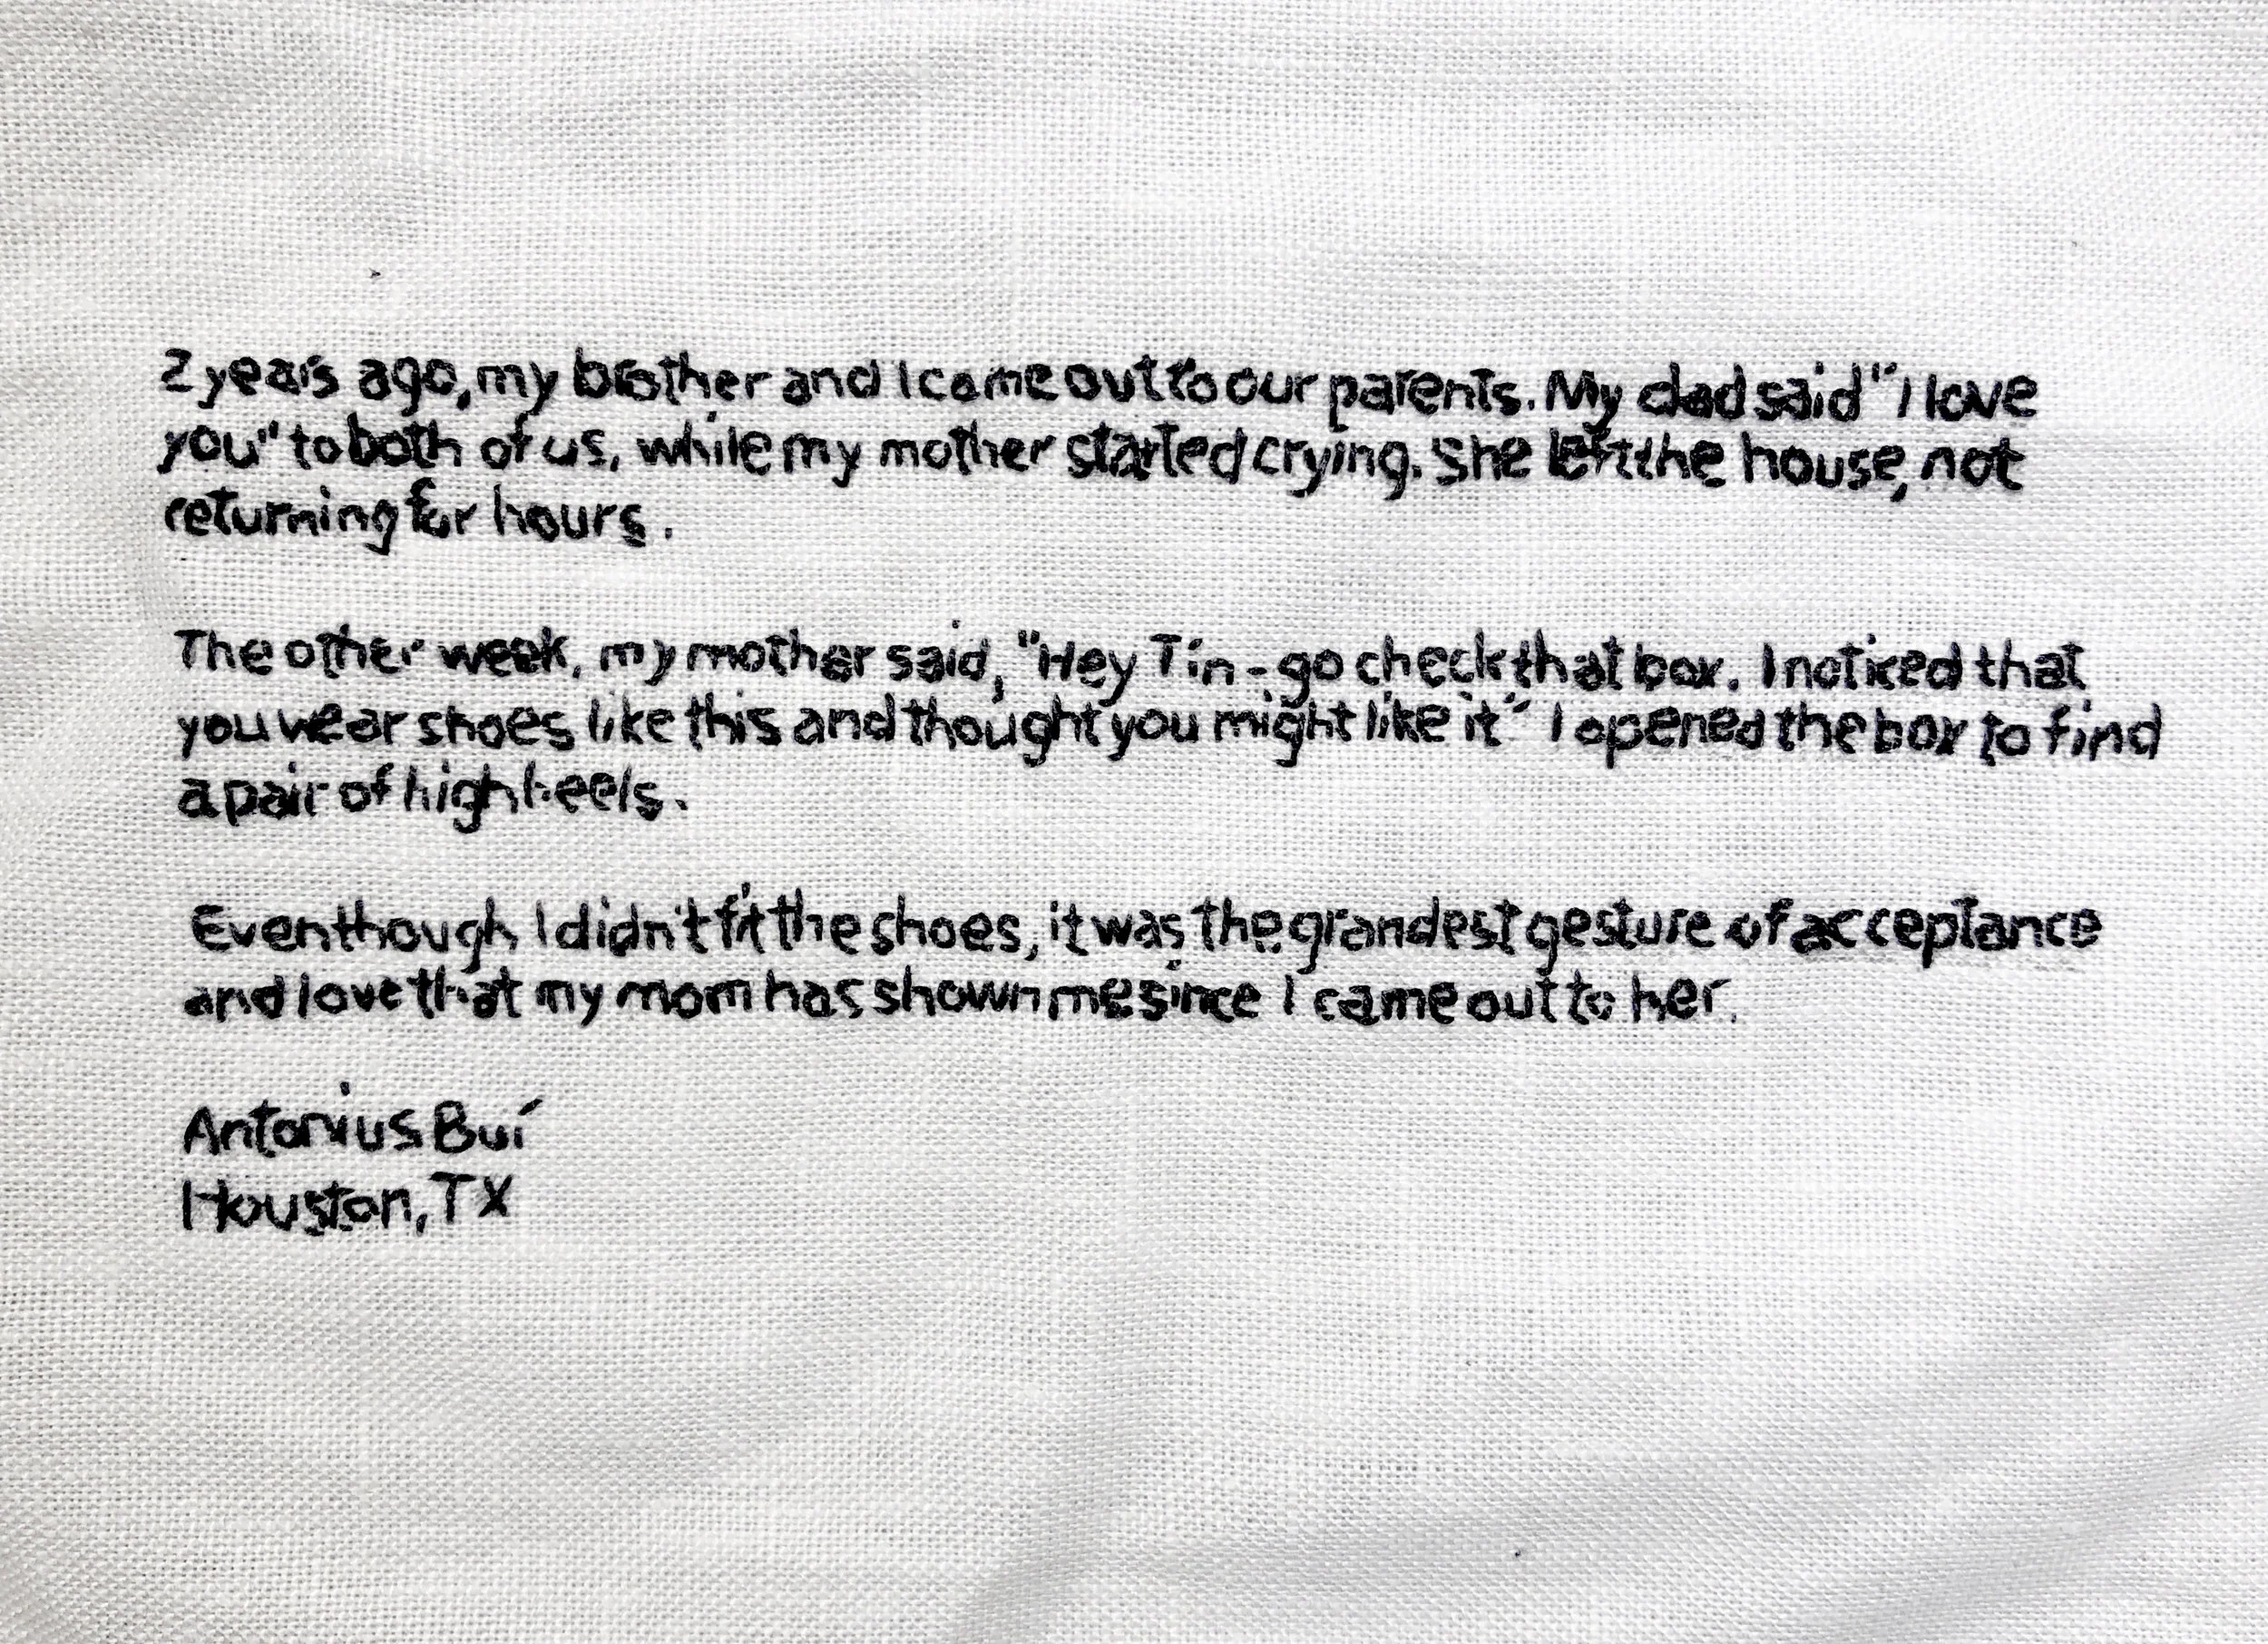 2 years ago, my brother and I came out to our parents. My dad said "I love
you" to both of us, while my mother started crying. She left the house, not
returning for hours.
The other week, my mother said, "Hey Tín - go check that box. I noticed that
you wear shoes like this and thought you might like it" I opened the box to find
a pair of high heels.
Even though I didn't fit the shoes, it was the grandest gesture of acceptance
and love that my mom has shown me since I came out to her.
Antonius Buí
Houston, TX